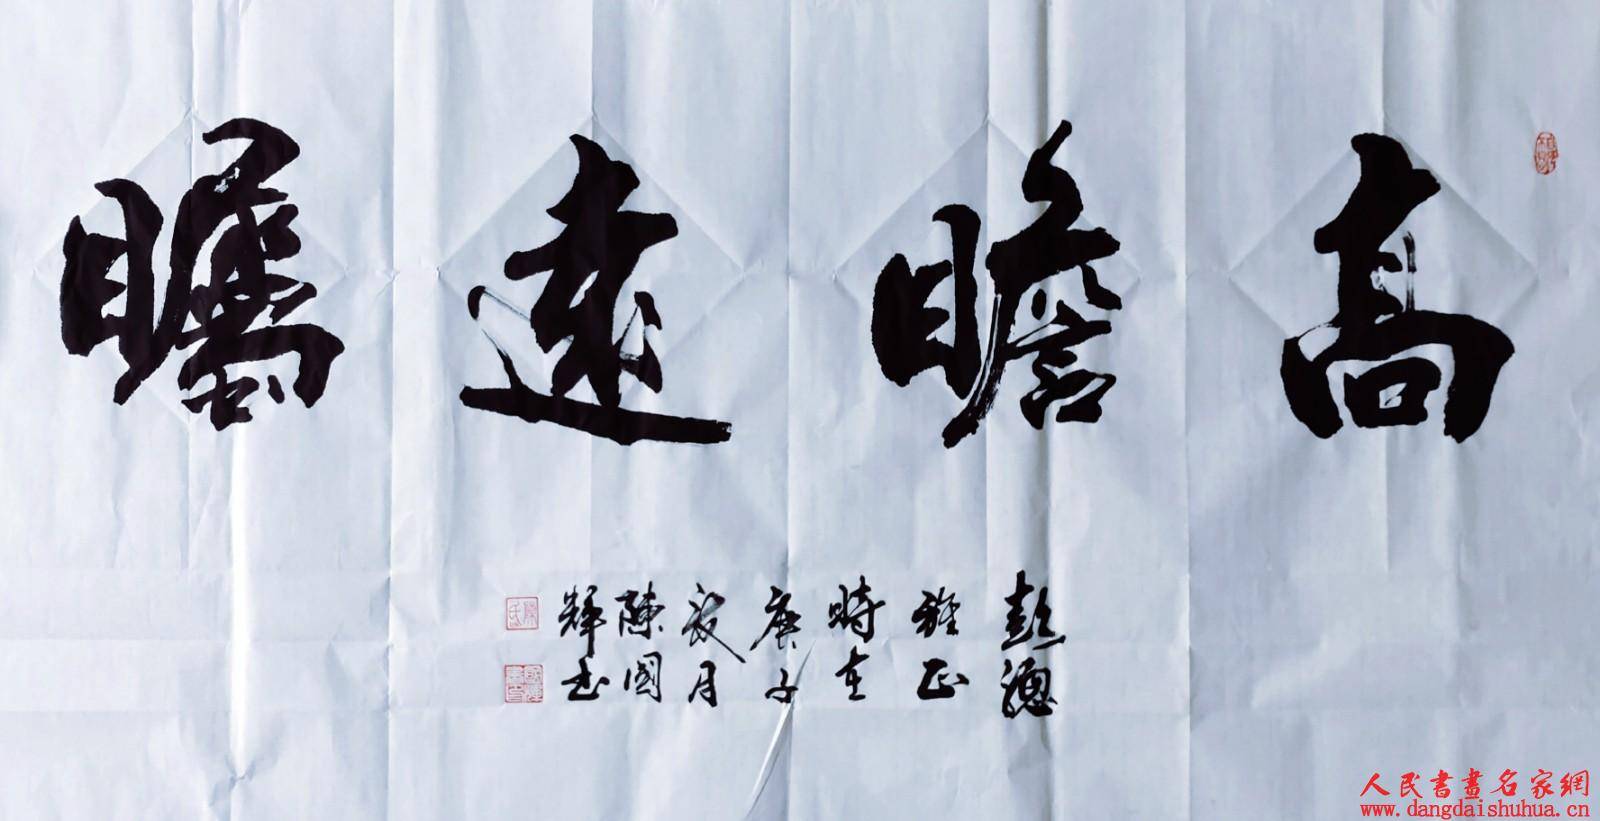 高瞻遠矚
彭總
雅正
時在
庚子
夜月
陳國
輝書
人民書畫名家網
www.dangdaishuhua.cn